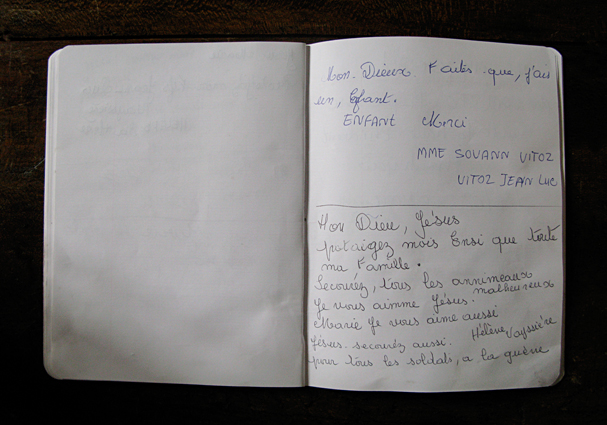 Mon Dieux Faites que, j'ais
un, Enfant.
ENFANT Merci
MME SOUANN VITOZ
VITOZ JEAN LUC
Mon Dieu, Jésus
protaigez mois Ensi que toute
ma Famille.
Secouréz, tous les annimeaux
malheureux
Je vous aimme Jésus.
Marie Je vous aime aussi
Hélène Vayssière
Jésus secouréz aussi.
pour tous les soldats, a la guerre